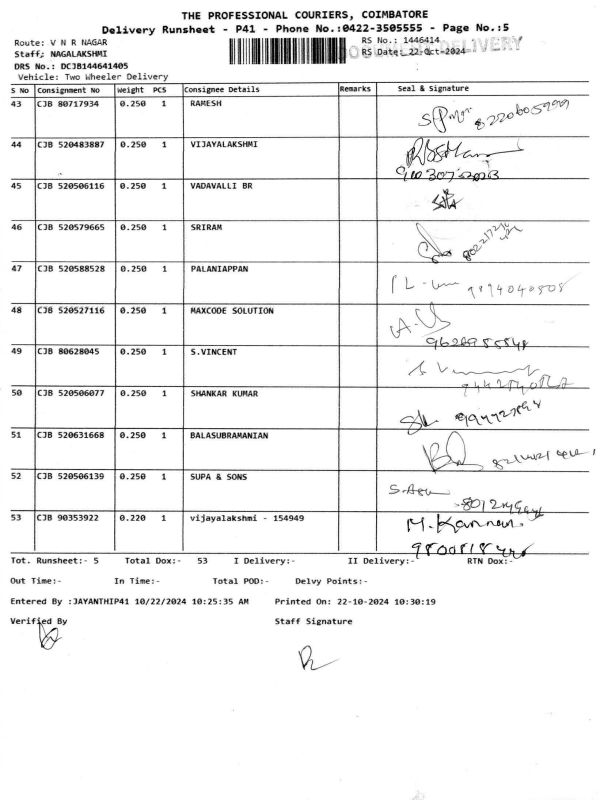 THE PROFESSIONAL COURIERS, COIMBATORE
Delivery Runsheet - P41 - Phone No.:0422-3505555 - Page No.:5
Route: V N R NAGAR
RS No.: 1446414
Staff: NAGALAKSHMI
RS Date: 22-Oct-2024
DELIVERY
DRS No.: DCJB144641405
Vehicle: Two Wheeler Delivery
S No Consignment No Weight PCS Consignee Details Remarks Seal & Signature
43 CJB 80717934 0.250 1 RAMESH
44 CJB 520483887 0.250 1 VIJAYALAKSHMI
45 CJB 520506116 0.250 1 VADAVALLI BR
46 CJB 520579665 0.250 1 SRIRAM
47 CJB 520588528 0.250 1 PALANIAPPAN
9894040508
48 CJB 520527116 0.250 1 MAXCODE SOLUTION
49 CJB 80628045 0.250 1 S.VINCENT
50 CJB 520506077 0.250 1 SHANKAR KUMAR
51 CJB 520631668 0.250 1 BALASUBRAMANIAN
52 CJB 520506139 0.250 1 SUPA & SONS
53 CJB 90353922 0.220 1 vijayalakshmi - 154949
M. Kannan
Tot. Runsheet:- 5 Total Dox:- 53 I Delivery:- II Delivery:- RTN Dox:-
Out Time:- In Time:- Total POD:- Delvy Points:-
Entered By :JAYANTHIP41 10/22/2024 10:25:35 AM Printed On: 22-10-2024 10:30:19
Verified By Staff Signature